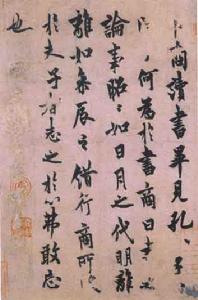 卜商讀書畢見孔〻子〻
問焉何為於書商曰書之
論事昭〻如日月之代明離
離如參辰之錯行商所受
於夫子者志之於心弗敢忘
也